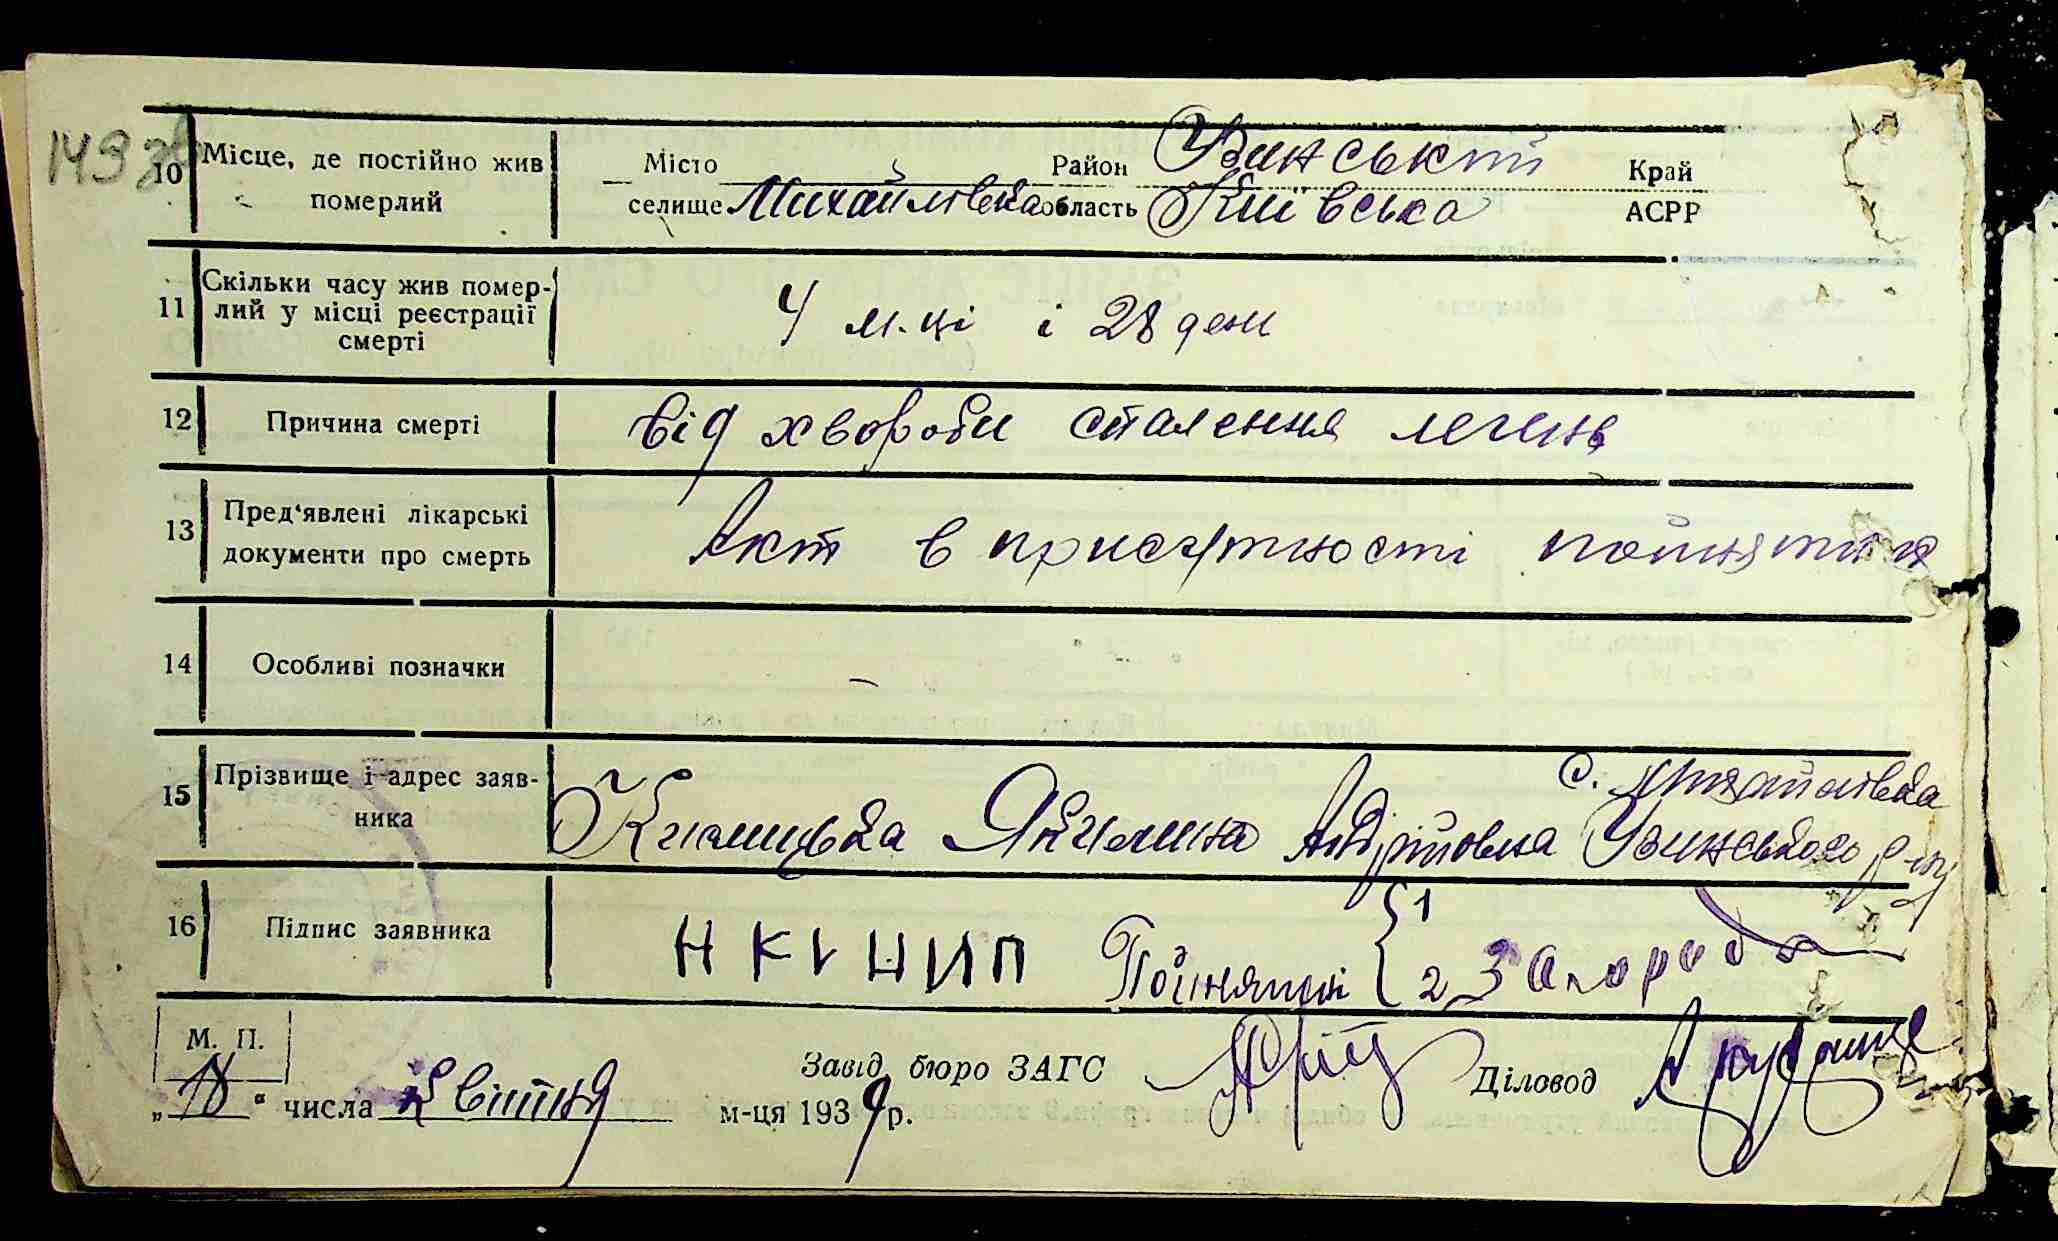 149 зв
10 Місце, де постійно жив померлий
Місто Район Узинський Край
селище Михайлівка область Київська АСРР
11 Скільки часу жив помер-
лий у місці реєстрації
смерті
4 м.ці і 28 день
12 Причина смерті
від хвороби спалення легень
13 Пред'явлені лікарські
документи про смерть
Акт в присутності понятих
14 Особливі позначки
—
15 Прізвище і адрес заяв-
ника
Якилина Андрійовна с. Михайлівка
Узинського р-ну
16 Підпис заявника
Понятий { 1
2
М. П.
Завід. бюро ЗАГС
Діловод
„18“ числа Квітня м-ця 1939 р.